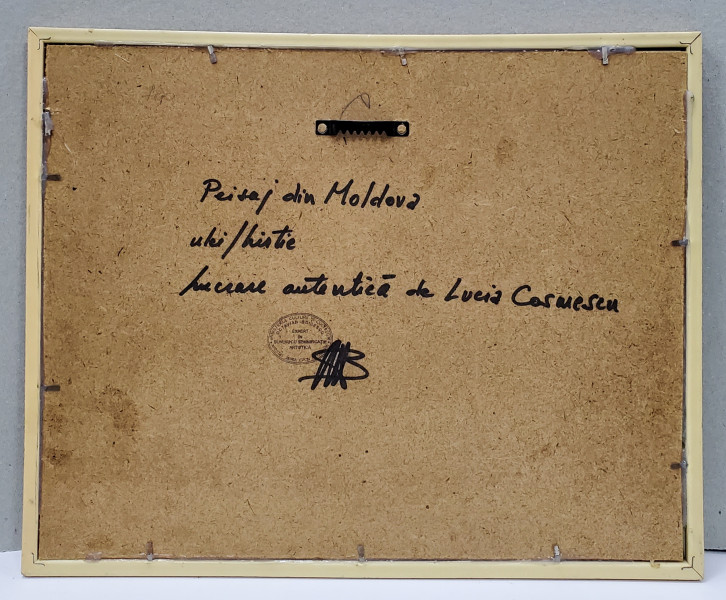 Peisaj din Moldova
ulei/hirtie
lucrare autentică de Lucia Cosmescu
EXPERT